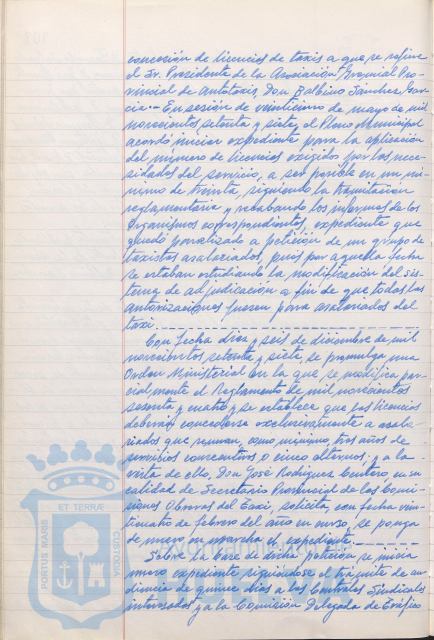 concesión de licencias de taxis a que se refiere
el Sr. Presidente de la Asociación Gremial Pro-
vincial de Autotaxis, Don Balbino Sánchez Gar-
cía.- En sesión de veintiuno de mayo de mil
novecientos setenta y siete, el Pleno Municipal
acordó iniciar expediente para la ampliación
del número de licencias exigidos por las nece-
sidades del servicio, a ser posible en un mí-
nimo de treinta, siguiendo la tramitación
reglamentaria y recabando los informes de los
Organismos correspondientes, expediente que
quedó paralizado a petición de un grupo de
taxistas asalariados, pues por aquella fecha
se estaban estudiando la modificación del sis-
tema de adjudicación a fin de que todas las
autorizaciones fuesen para asalariados del
taxi.
Con fecha diez y seis de diciembre de mil
novecientos setenta y siete, se promulga una
Orden Ministerial en la que se modifica par-
cialmente el Reglamento de mil novecientos
sesenta y cuatro y se establece que las licencias
deberán concederse exclusivamente a asala-
riados que reunan, como mínimo, tres años de
servicios consecutivos o cinco alternos, y a la
vista de ello, Don José Rodríguez Centeno en su
calidad de Secretario Provincial de las Comi-
siones Obreras del Taxi, solicita, con fecha vein-
ticuatro de febrero del año en curso, se ponga
de nuevo en marcha el expediente.
Sobre la base de dicha petición, se inicia
nuevo expediente siguiéndose el trámite de au-
diencia de quince días a las Centrales Sindicales
interesadas y a la Comisión Delegada de Tráfico
PORTUS MARIS ET TERRÆ CUSTODIA